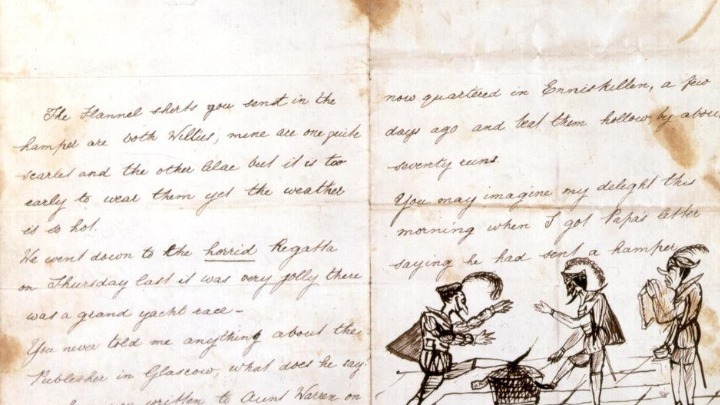 The Flannel shirts you sent in the
hamper are both Willies, mine are one quite
scarlet and the other lilac but it is too
early to wear them yet the weather
is so hot.
We went down to the horrid Regatta
on Thursday last it was very jolly there
was a grand yacht race –
You never told me anything about the
Publisher in Glascow, what does he say
written to Aunt Warren on
now quartered in Enniskillen, a few
days ago and beat them hollow by about
seventy runs
You may imagine my delight this
morning when I got Papas letter
saying he had sent a hamper